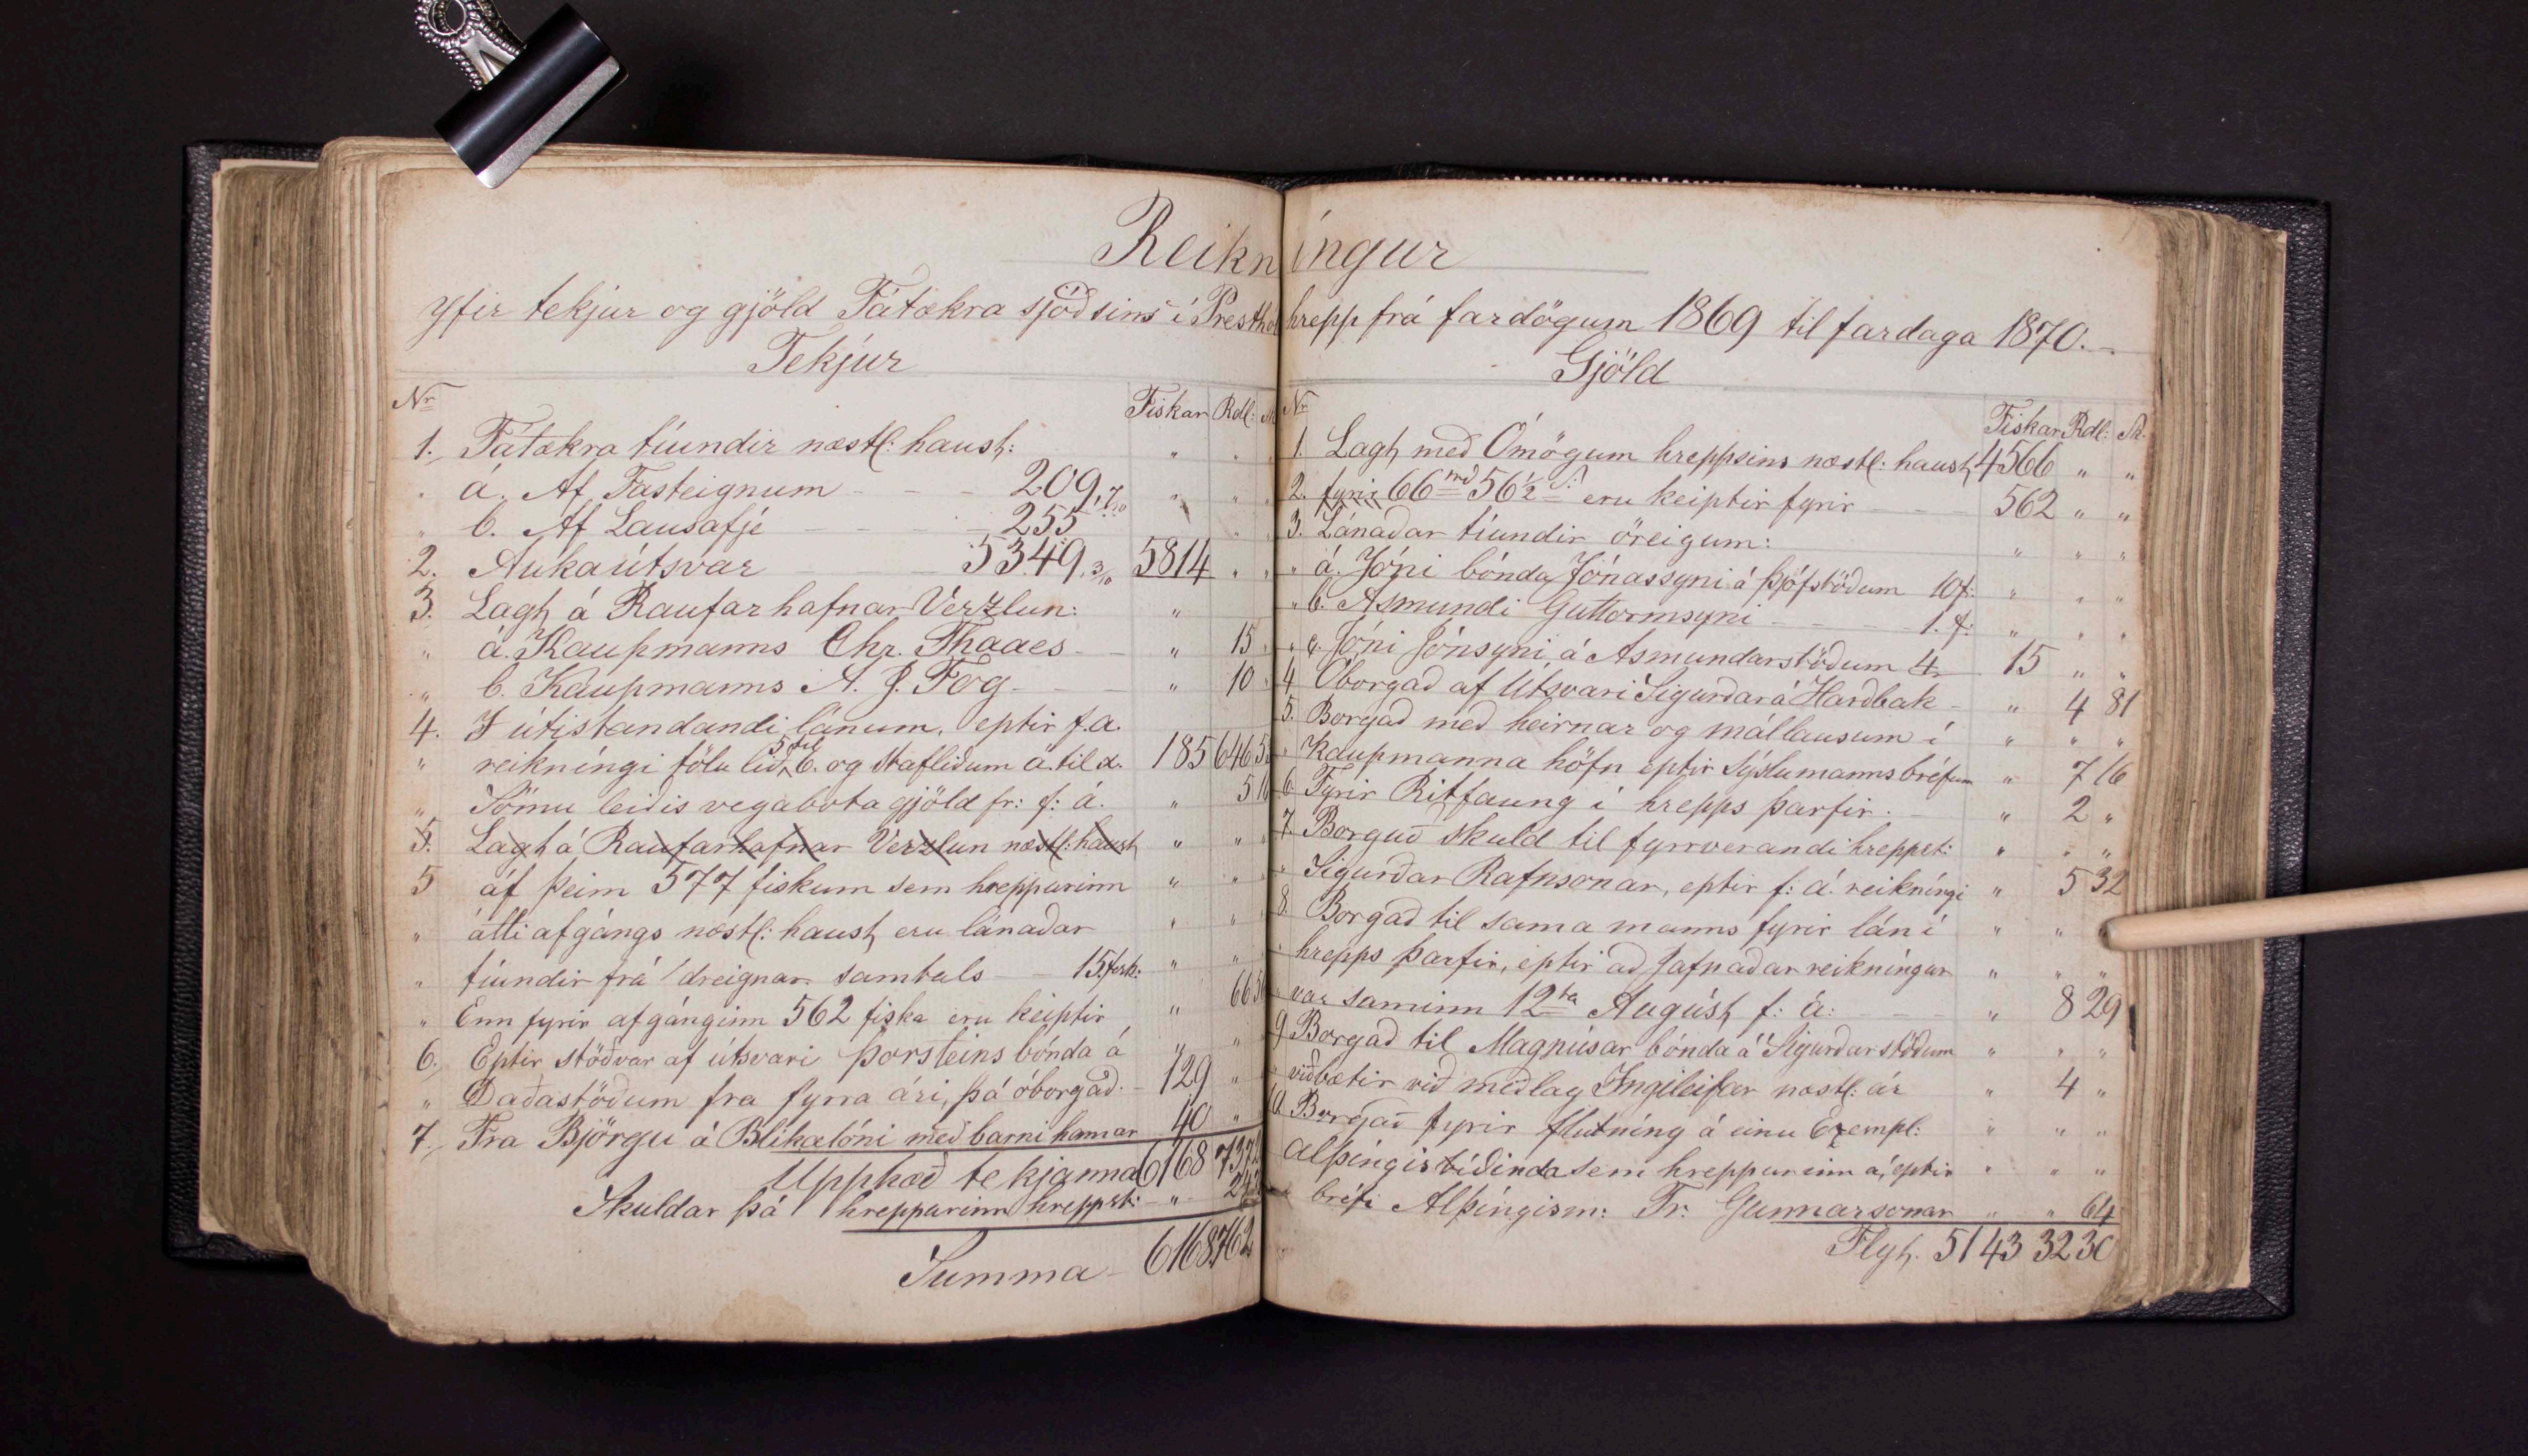 Reikníngur
yfir tekjur og gjöld Fátækra sjóðsins í Presthol hrepp frá fardögum 1869 til fardaga 1870.
Tekjur
Nr Fiskar Rdl:
1. Fátækra tíundir næstl: haust:
" a. Af Fasteignum 209,7/10 " "
" b. Af Lausafje 255 "
2. Aukaútsvar 5349,3/10 5814 "
3. Lagt á Raufarhafnar Verzlun: "
" a. Kaupmanns Chr. Thaaes " 15
" b. Kaupmanns A. J. Fog " 10
4. I útistandandi lánum, eptir f.a.
" reikníngi tölu lið 5 til 6. og stafliðum a. til d. 185 646
" Sömu leiðis vegabota gjöld fr: f: á. " 5
5. Lagt á Raufarhafnar Verzlun næstl: haust " "
5 af þeim 577 fiskum sem hreppurinn " "
" átti afgángs næstl: haust, eru lánaðar " "
" tíundir frá öreignar samtals 15 fisk: " "
" Enn fyrir afgánginn 562 fiska eru keiptir " 66
6. Eptir stöðvar af útsvari Þorsteins bónda á " "
" Daðastöðum fra fyrra ári, þá óborgað. 129 "
7. Fra Björgu á Blikalóni með barni hennar 40 "
Upphæð tekjanna 6168 73
Skuldar þá hreppurinn hreppst: "
Summa 6168 76
Gjöld
Nr Fiskar Rdl: Sk.
1. Lagt með Ómögum hreppsins næstl: haust, 4566 " "
2. fyrir 66rd 56½ s: eru keiptir fyrir 562 " "
3. Lánaðar tíundir öreigum: " " "
" a. Jóni bónda Jónassyni á Þjófstöðum 10f: " " "
" b. Asmundi Guttormsyni 1.f: " " "
" c. Jóni Jónsyni á Asmundarstöðum 4 15 " "
4 Oborgað af Útsvari Sigurðar á Harðbak " 4 81
5. Borgað með heirnar og mállausum í " " "
" Kaupmanna höfn eptir Sýslumanns bréfum " 7 16
6. Fyrir Ritfaung í hrepps þarfir. " 2 "
7. Borguð skuld til fyrrverandi hreppst: " " "
" Sigurðar Rafnsonar, eptir f: á. reikníngi " 5 32
8. Borgað til sama manns fyrir lán í " " "
" hrepps þarfir, eptir að Jafnaðar reikníngur " " "
" var saminn 12ta Augúst, f: á: " 8 29
9 Borgað til Magnúsar bónda á Sigurðarstöðum " " "
" viðbætir við meðlag Ingileifar næstl: ár " 4 "
10 Borgað fyrir flutníng á einu Exempl: " " "
Alþingistíðinda sem hreppurinn á, eptir " " "
" bréfi Alþingism: Tr. Gunnarsonar " " 64
Flyt. 5143 32 30